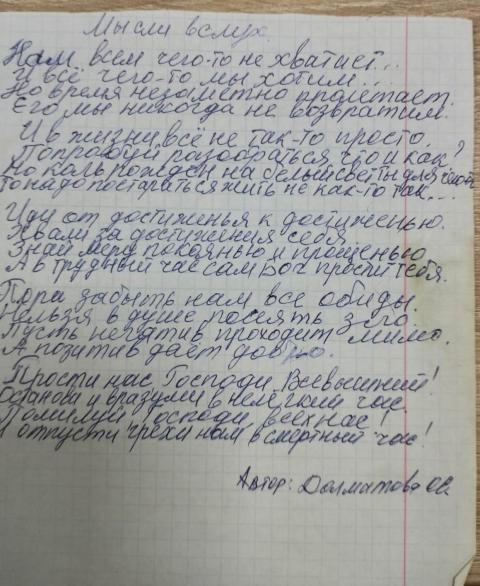 Мысли вслух.
Нам всем чего-то не хватает...
И всё чего-то мы хотим...
Но время незаметно пролетает.
Его мы никогда не возвратим.
И в жизни всё не так-то просто.
Попробуй разобраться что и как?
Но коль рождён на белый свет ты для
То надо постараться жить не как-то так...
Иди от достиженья к достиженью.
Хвали за достижения себя
Знай меру покаянью и прощенью
А в трудный час сам Бог простит тебя.
Пора забыть нам все обиды.
Нельзя в душе посеять зло.
Пусть негатив проходит мимо.
А позитив даёт добро.
Прости нас Господи Всевышний!
Останови и вразуми в нелёгкий час.
Помилуй Господи всех нас!
И отпусти грехи нам в смертный час!
Автор: Долматова